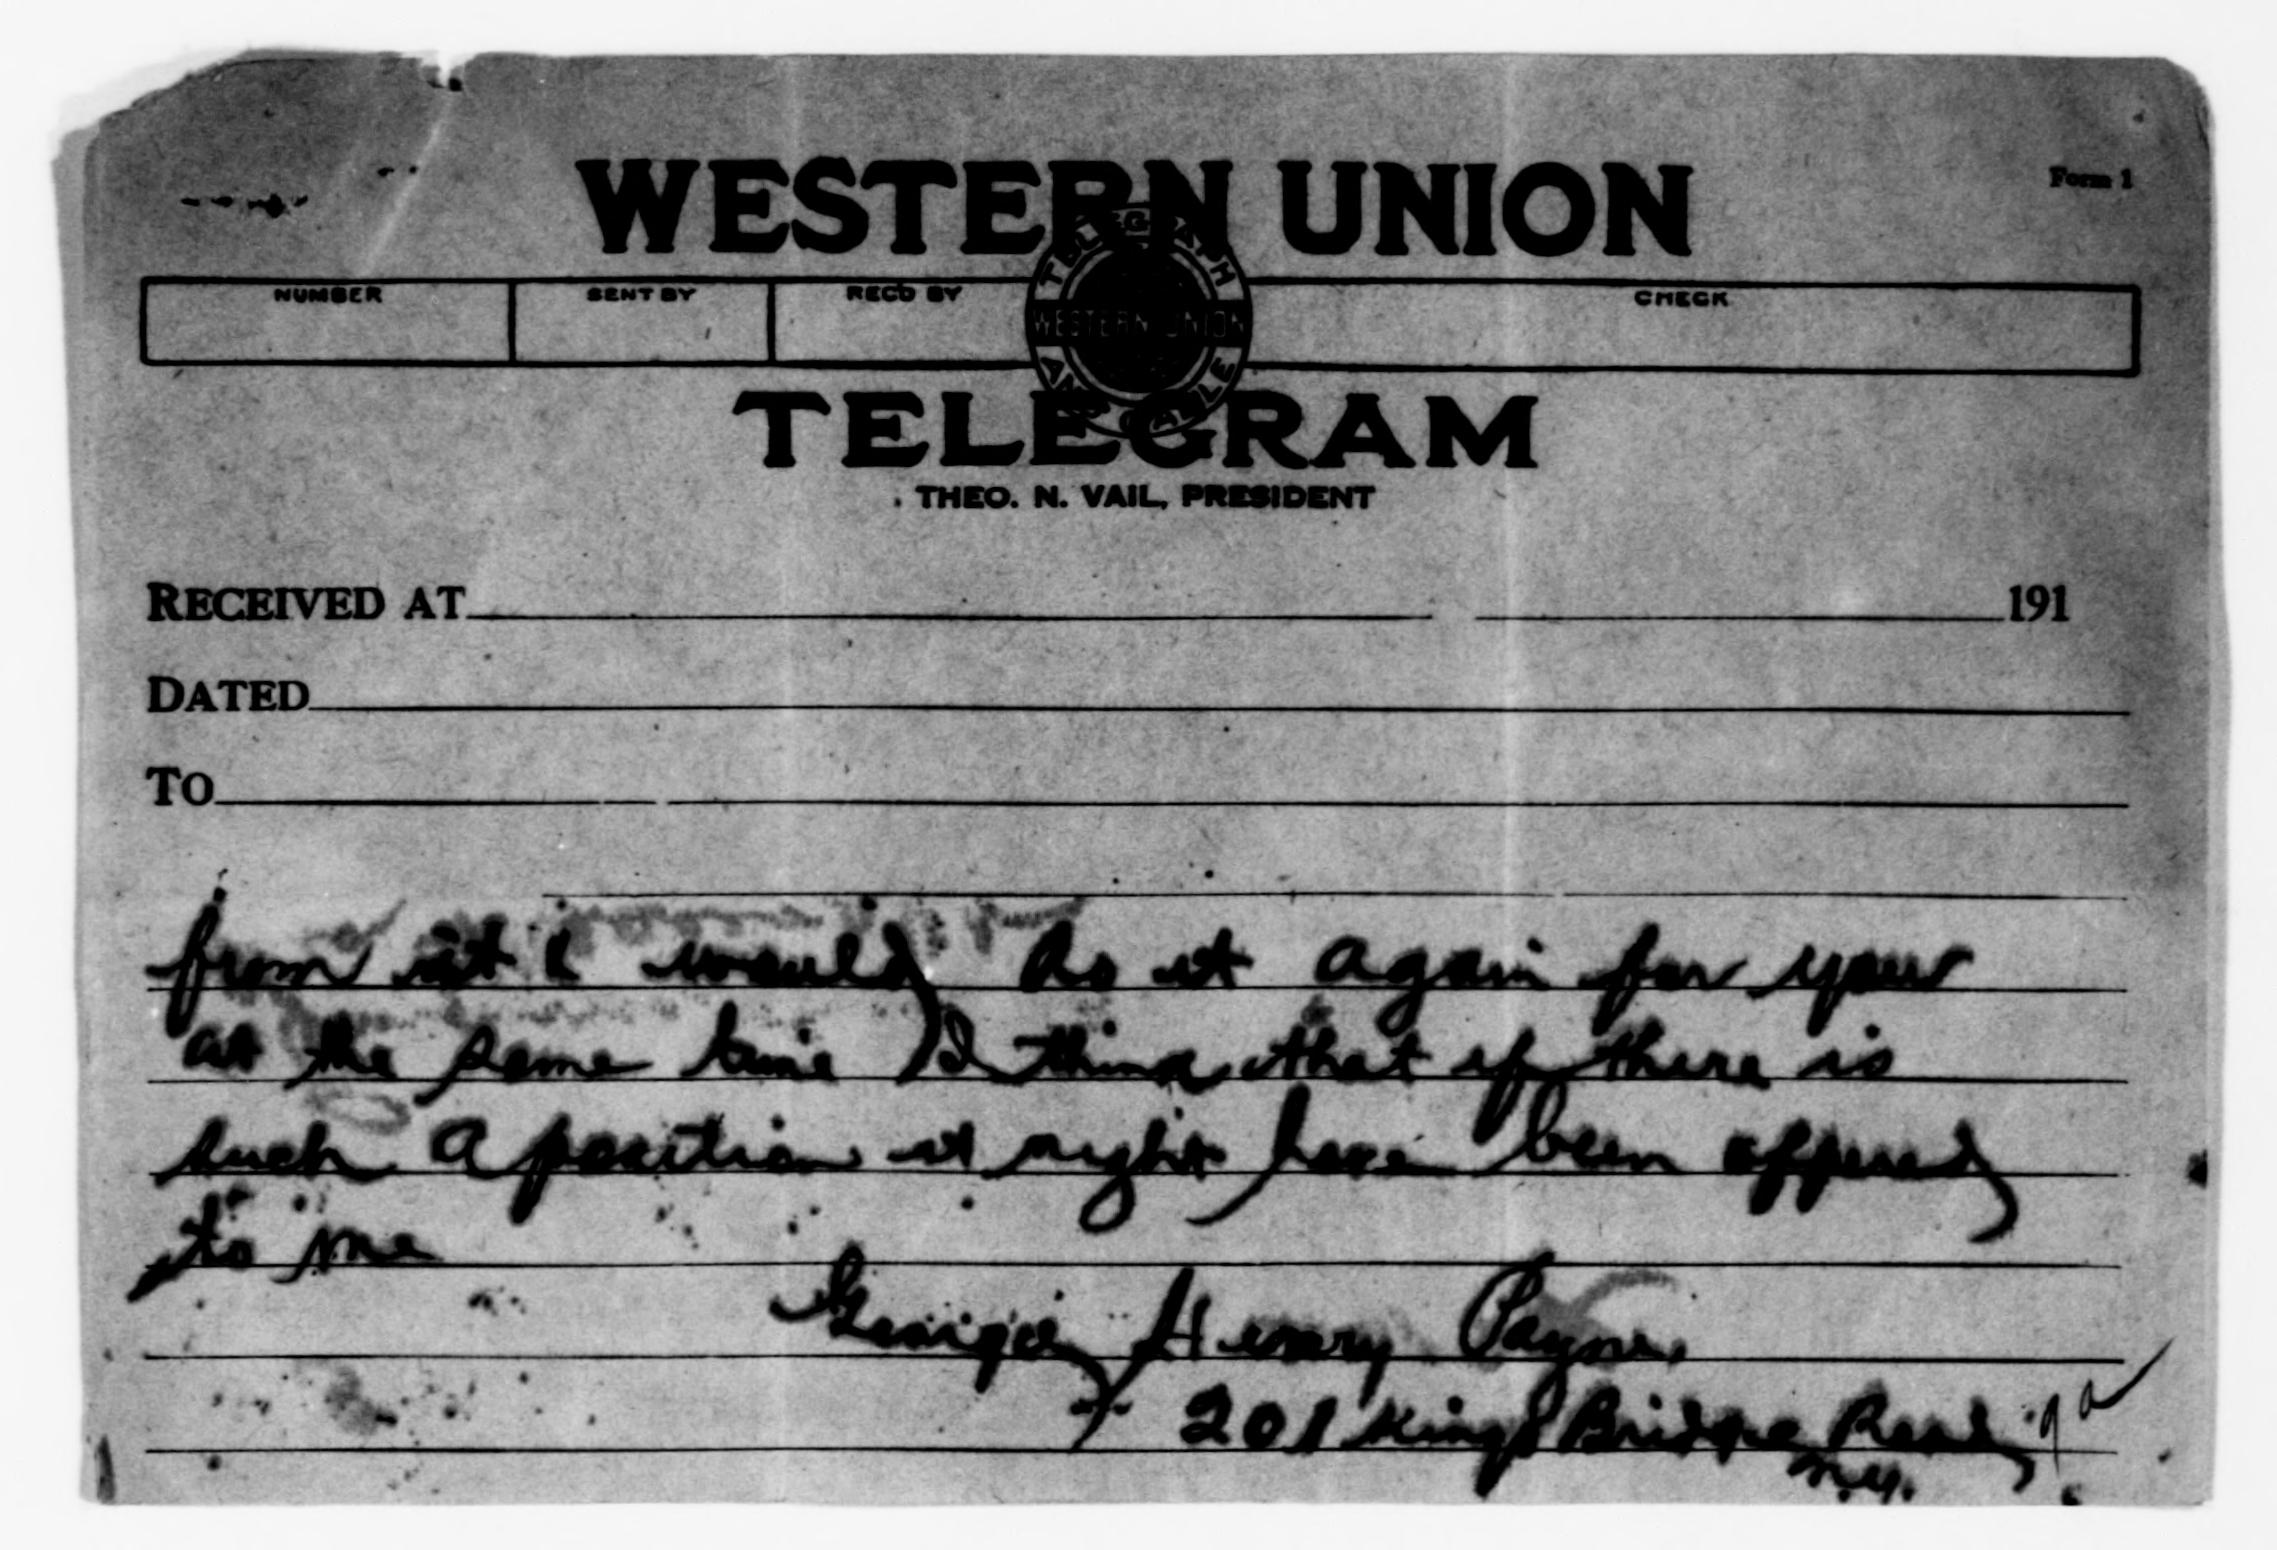 WESTERN UNION
Form 1
NUMBER SENT BY REC'D BY CHECK
TELEGRAPH AND CABLE
WESTERN UNION
TELEGRAM
THEO. N. VAIL, PRESIDENT
RECEIVED AT 191
DATED
TO
from it I would do it again for your
at the same time I think that if there is
such a position it might have been offered
to me
George Henry Payne.
201 Kings Bridge Road
N.Y.